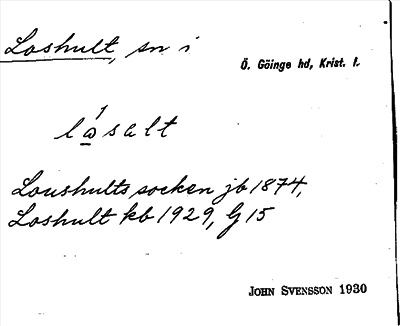 Loshult, sn i
Ö. Göinge hd, Krist. l.
lòsalt
Loushults socken jb 1874,
Loshult kb 1929, G 15
JOHN SVENSSON 1930